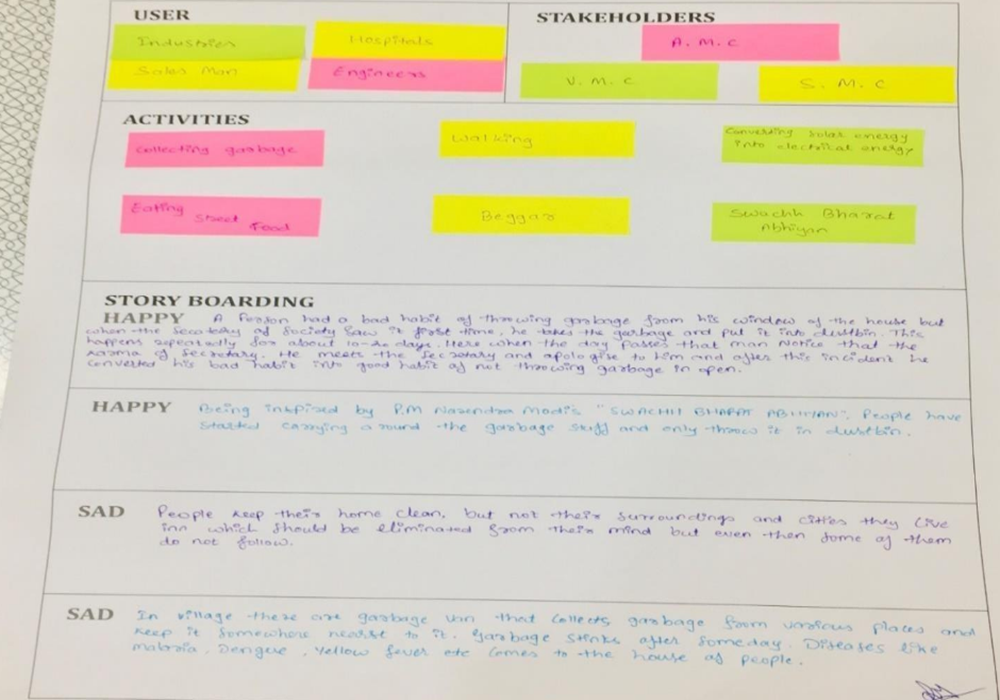 USER
Industries
Hospitals
Sales Man
Engineers
STAKEHOLDERS
A. M. C
V. M. C
S. M. C
ACTIVITIES
Collecting garbage
Walking
Converting solar energy
into electrical energy
Eating street food
Beggar
Swachh Bharat
Abhiyan
STORY BOARDING
HAPPY A Person had a bad habit of throwing garbage from his window of the house but
when the Secretary of Society saw it first time, he takes the garbage and put it into dustbin. This
happens repeatedly for about 10-20 days. Here when the day passes that man Notice that the
karma of Secretary. He meets the Secretary and apologise to him and after this incident he
converted his bad habit into good habit of not throwing garbage in open.
HAPPY Being inspired by P.M Narendra Modi's "SWACHH BHARAT ABHIYAN". People have
started carrying around the garbage stuff and only throw it in dustbin.
SAD People keep their home clean, but not their surroundings and cities they live
inn which should be eliminated from their mind but even then some of them
do not follow.
SAD In village there are garbage van that collects garbage from various places and
keep it somewhere nearst to it. Garbage stinks after someday. Diseases like
malaria, Dengue, Yellow fever etc comes to the house of people.